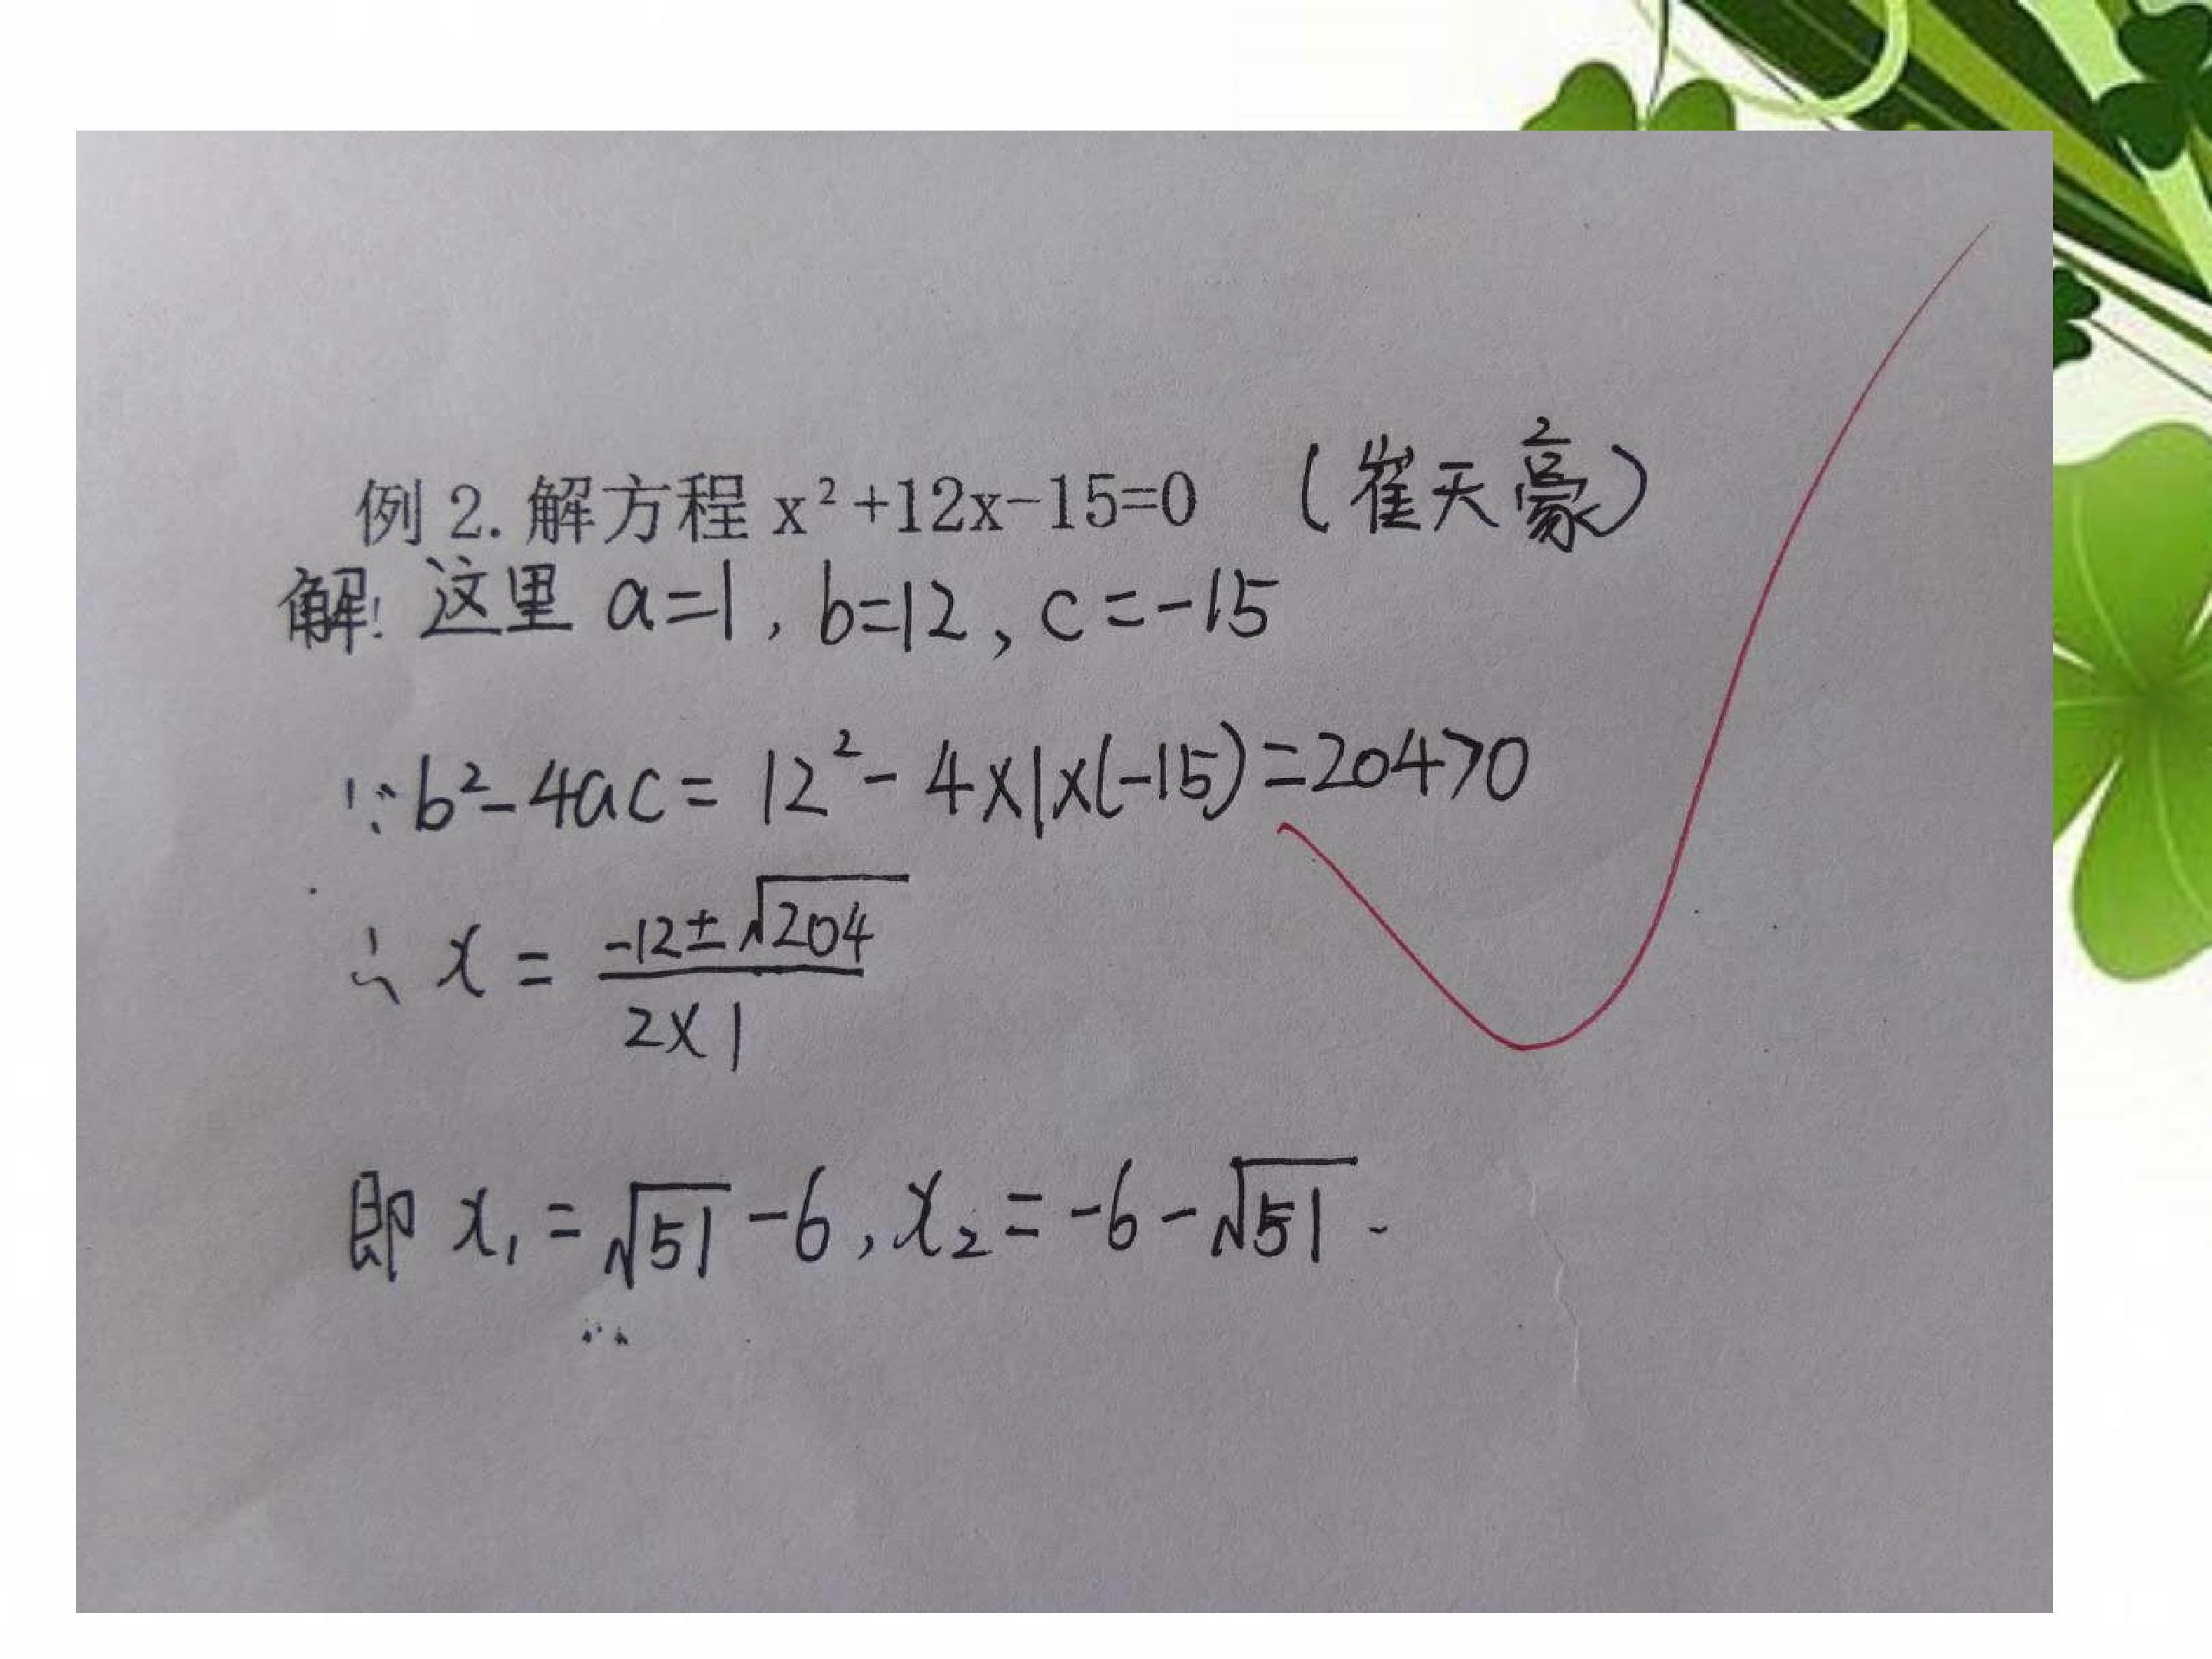 例 2. 解方程 x²+12x-15=0 (崔天豪)
解: 这里 a=1, b=12, c=-15
∵b²-4ac= 12²- 4×1×(-15)=204>0
∴ x = (-12±√204)/(2×1)
即 x₁=√51-6, x₂=-6-√51.